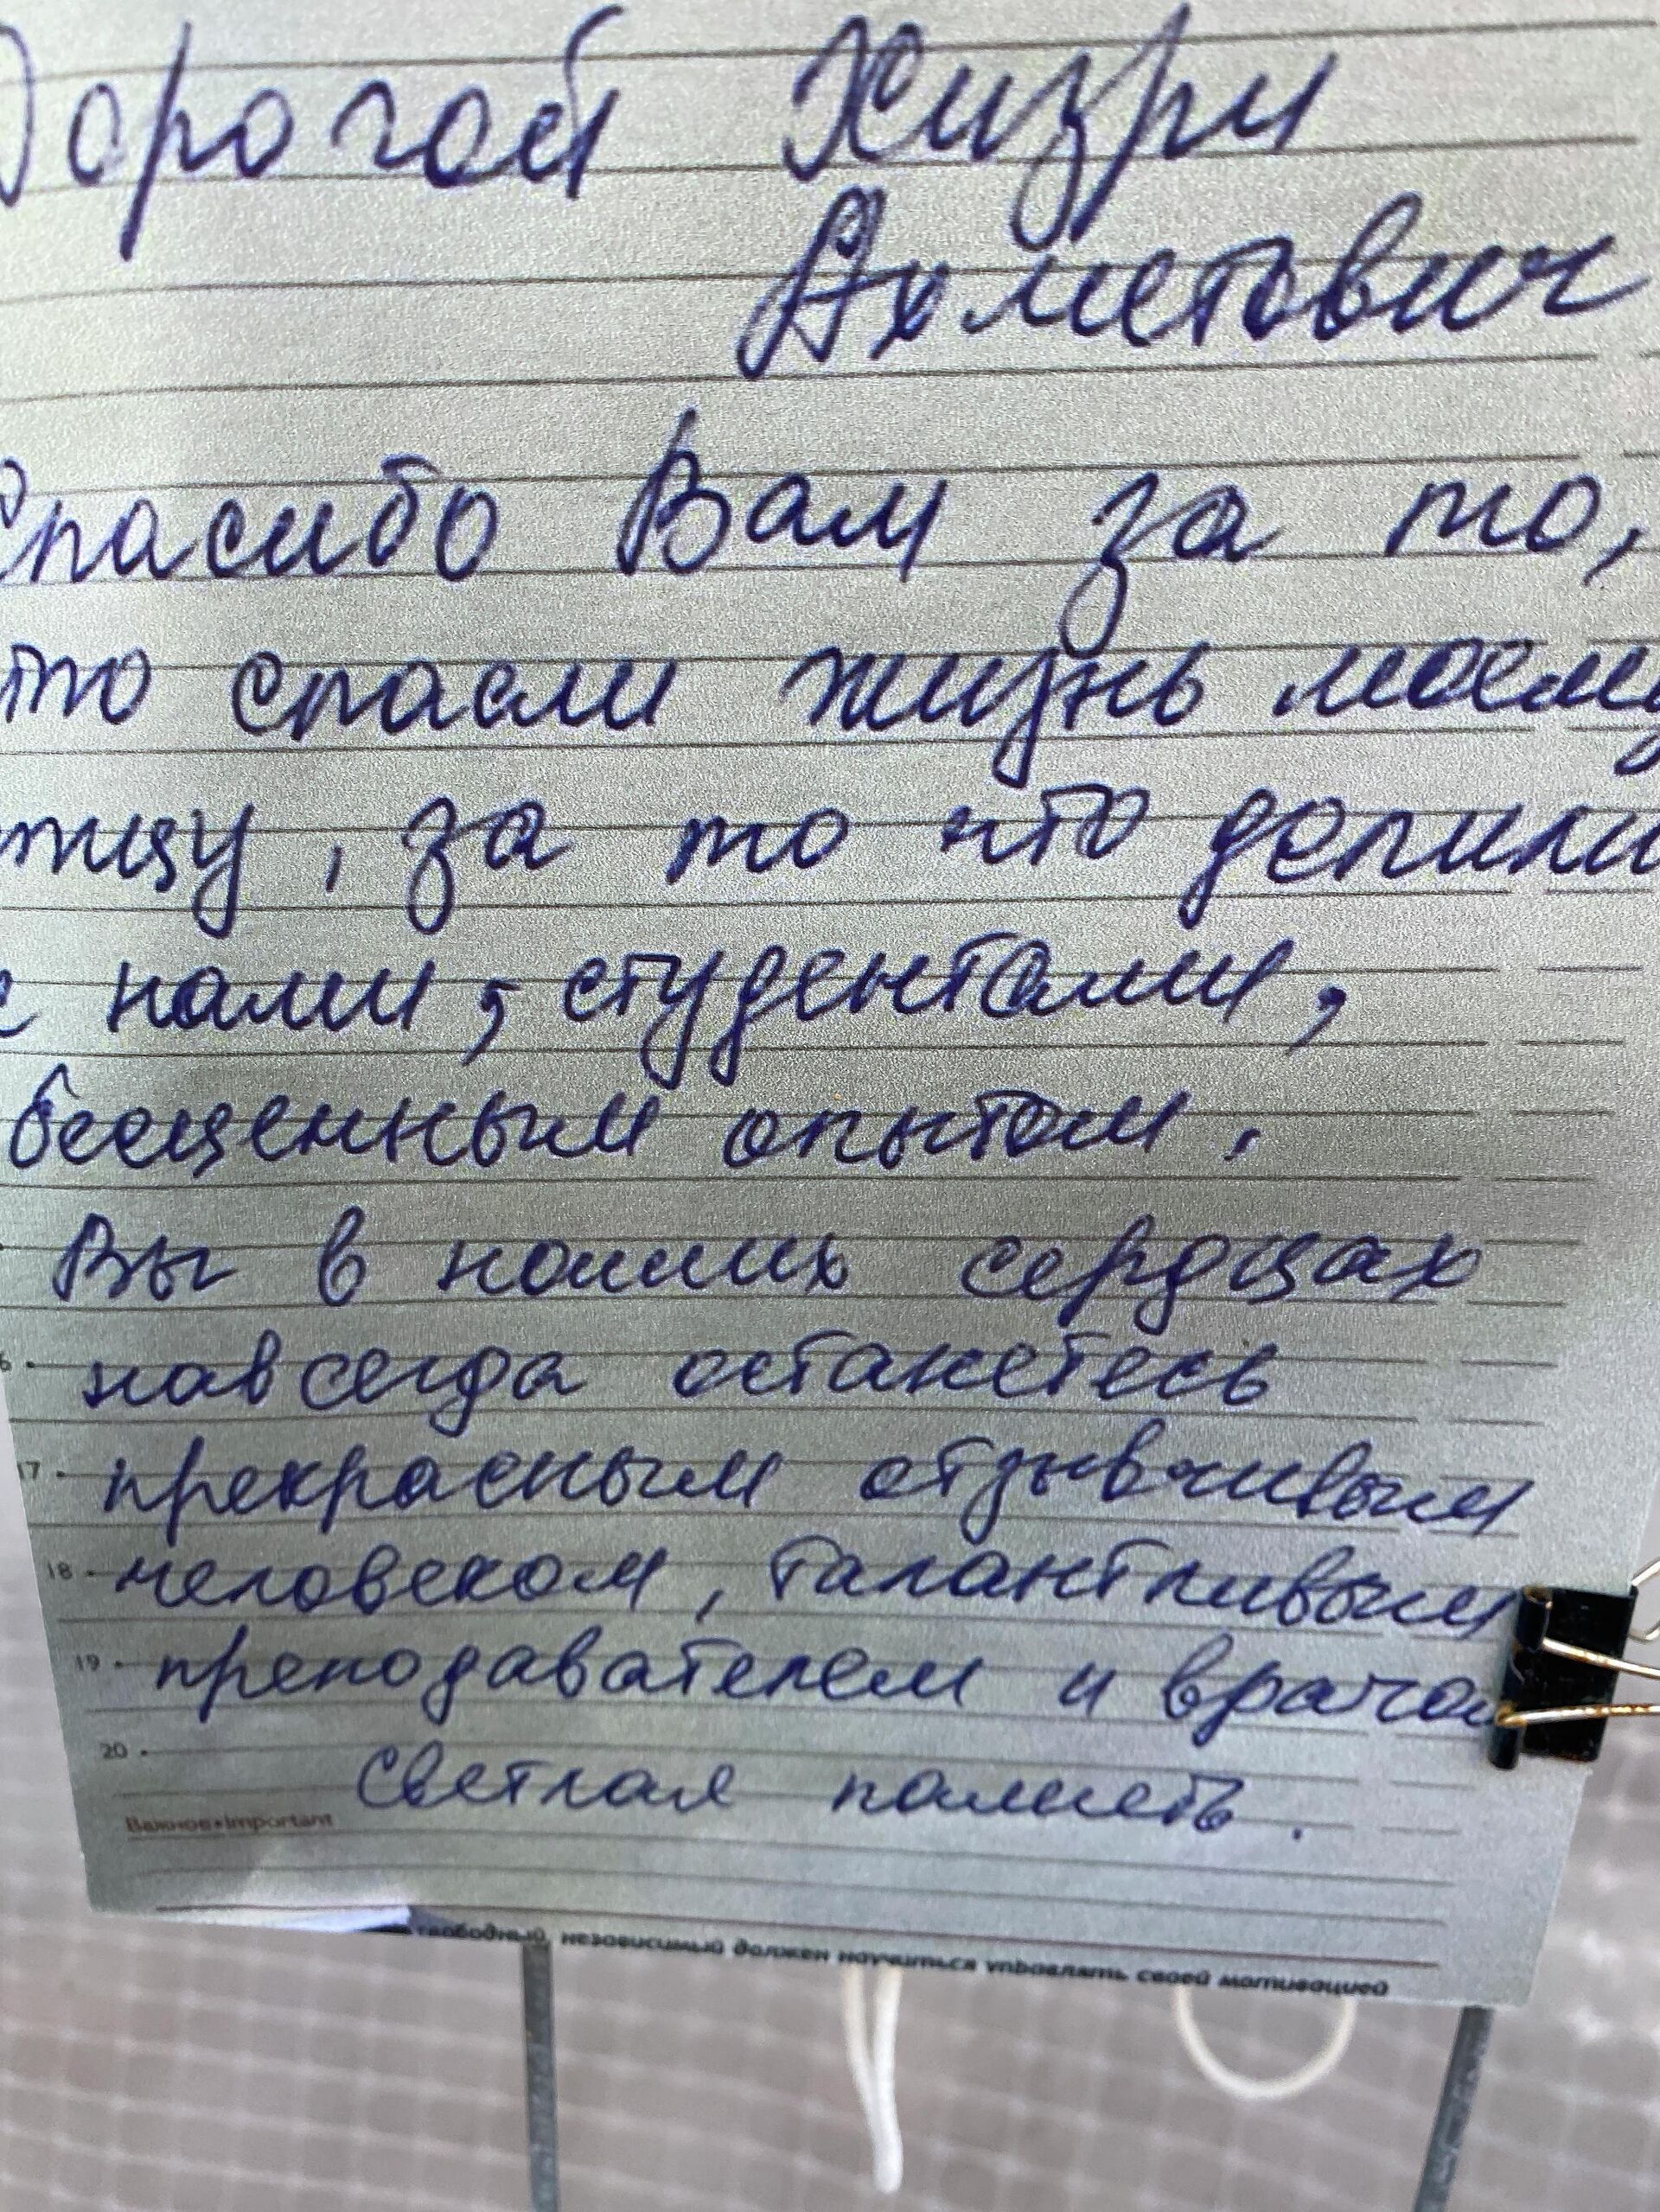 Дорогой Хизри
Ахметович
Спасибо Вам за то,
что спасли жизнь моему
отцу, за то что делили
с нами, студентами,
бесценным опытом.
Вы в наших сердцах
навсегда останетесь
17 прекрасным отзывчивым
18 человеком, талантливым
19 преподавателем и врачом
20
Светлая память.
Важное•Important
свободный, независимый должен научиться управлять своей мотивацией